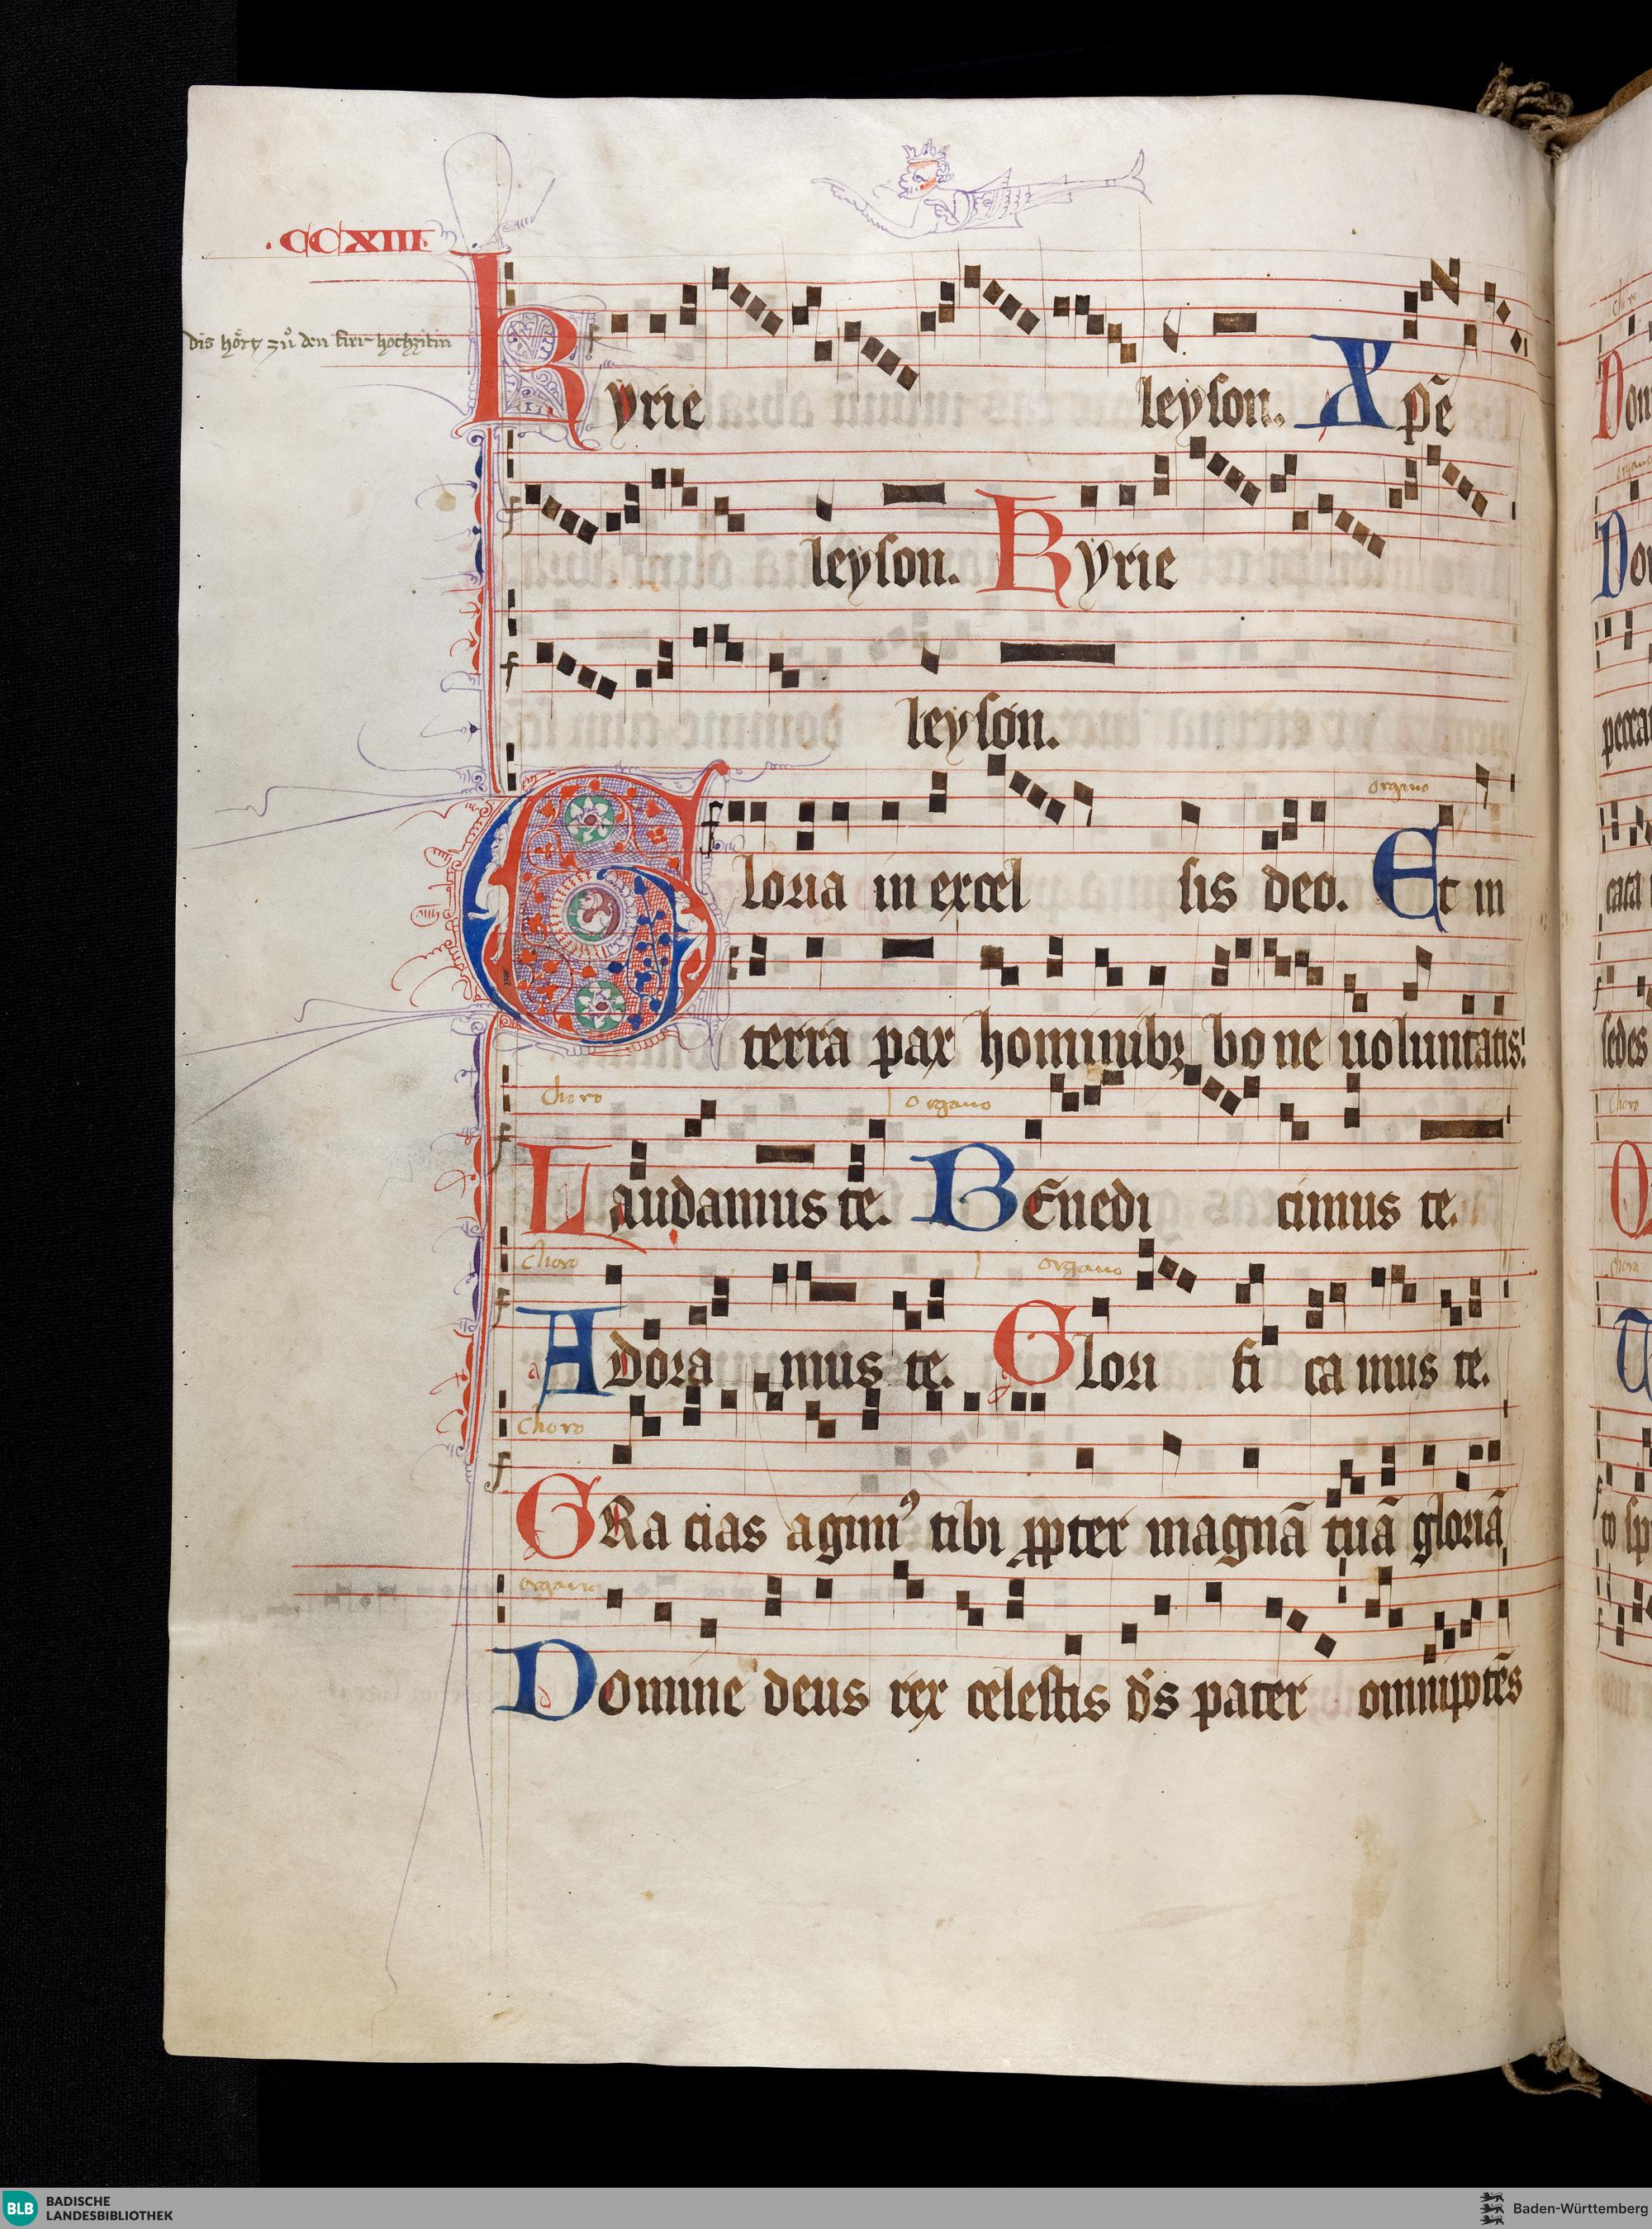 .CCXIII.
dis hört zů den fier hochzitin
Kyrie leyson. Xpē
leyson. Kyrie
leyson.
organo
Gloria in excelsis deo. Et in
terra pax hominibꝫ bone uoluntatis.
choro organo
Laudamus te. Benedicimus te.
choro organo
Adoramus te. Glorificamus te.
choro
GRacias agimꝰ tibi ꝓpter magnā tuā gloriā
organo
Domine deus rex celestis dˢs pater omnipotēs
BLB BADISCHE
LANDESBIBLIOTHEK
Baden-Württemberg